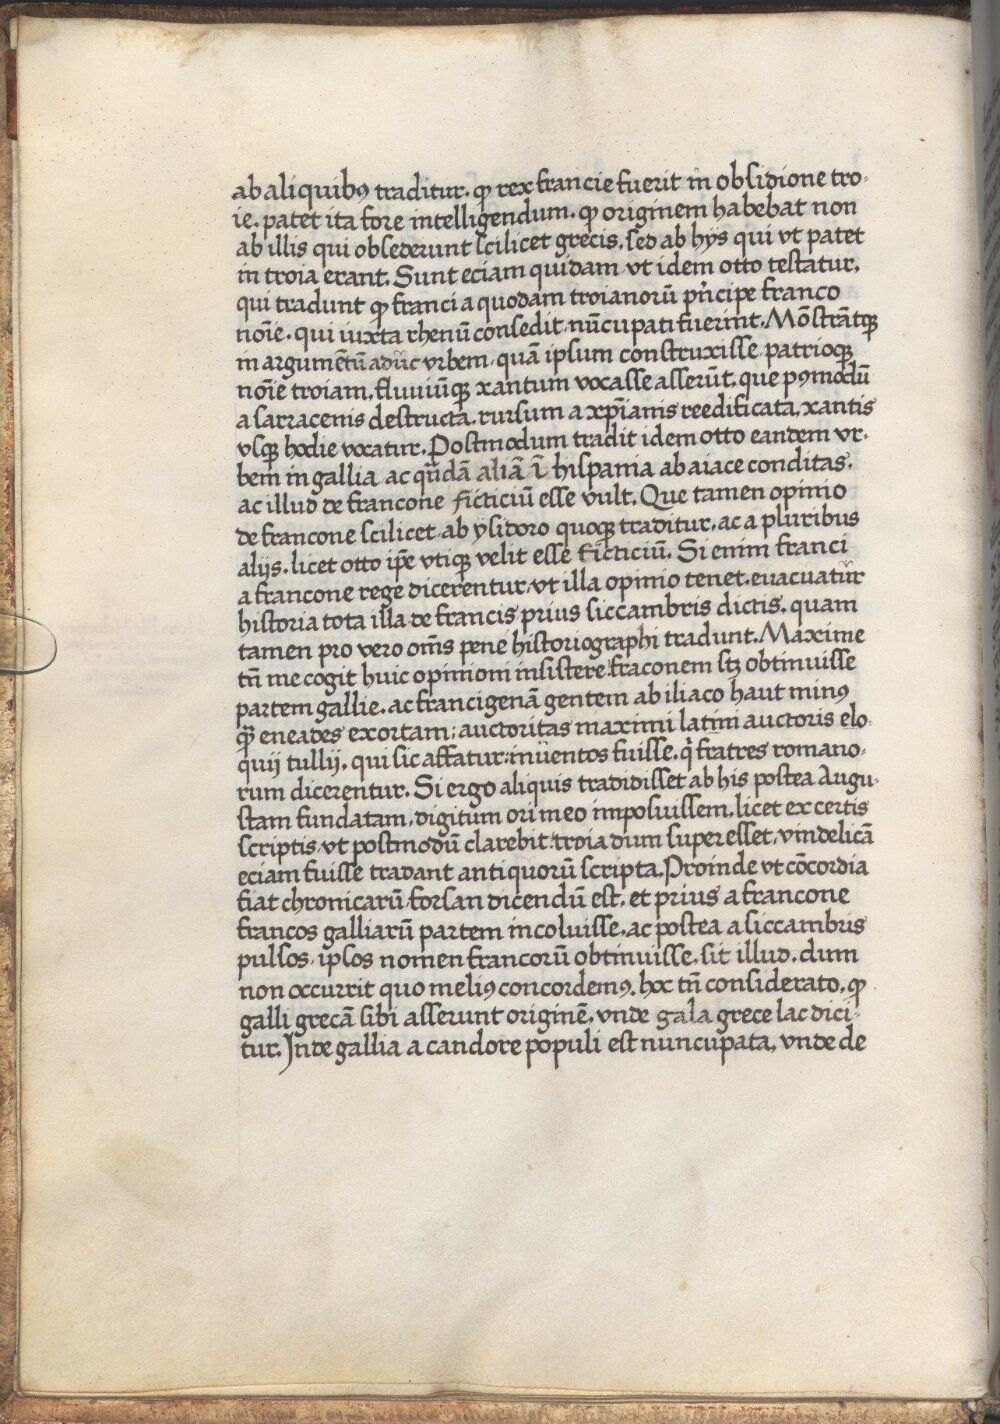 ab aliquibꝰ traditur. ꝙ rex francie fuerit in obsidione tro-
ie. patet ita fore intelligendum. ꝙ originem habebat non
ab illis qui obsederunt scilicet grecis. sed ab hÿs qui vt patet
in troia erant. Sunt eciam quidam vt idem otto testatur.
qui tradunt ꝙ franci a quodam troianorū pn̄cipe franco
noīe. qui iuxta rhenū consedit nūcupati fuerint. Mōstrātꝗ
in argumētū adūc vrbem. quā ipsum construxisse patrioꝗ
noīe troiam, fluuiūꝗ xantum vocasse asserūt. que pꝰmodū
a sarracenis destructa. rursum a xp̄ianis reedificata, xantis
vsꝗ hodie vocatur. Postmodum tradit idem otto eandem vr-
bem in gallia ac qūdā aliā ī hispania ab aiace conditas.
ac illud de francone ficticiū esse vult. Que tamen opinio
de francone scilicet. ab ÿsidoro quoꝗ traditur. ac a pluribus
alijs. licet otto ip̄e vtiꝗ velit esse ficticiū. Si enim franci
a francone rege dicerentur. vt illa opinio tenet. euacuatur
historia tota illa de francis prius siccambris dictis. quam
tamen pro vero om̄s pene historiographi tradunt. Maxime
tn̄ me cogit huic opinioni insistere fraconem sꝫ obtinuisse
partem gallie. ac francigenā gentem ab iliaco haut minꝰ
ꝙ̄ eneades exortam; auctoritas maximi latini auctoris elo-
quij tullij. qui sic affatur: inuentos fuisse. q̄ fratres romano-
rum dicerentur. Si ergo aliquis tradidisset ab his postea Augu-
stam fundatam, digitum ori meo imposuissem. licet ex certis
scriptis vt postmodū clarebit troia dum superesset. vindelicā
eciam fuisse tradant antiquorū scripta. Proinde vt cōcordia
fiat chronicarū forsan dicendū est. et prius a francone
francos galliarū partem incoluisse. ac postea a siccambris
pulsos ipsos nomen francorū obtinuisse. sit illud. dum
non occurrit quo meliꝰ concordemꝰ. hoc tn̄ considerato. ꝙ
galli grecā sibi asserunt originē, vnde gala grece lac dici-
tur. Inde gallia a candore populi est nuncupata, vnde de